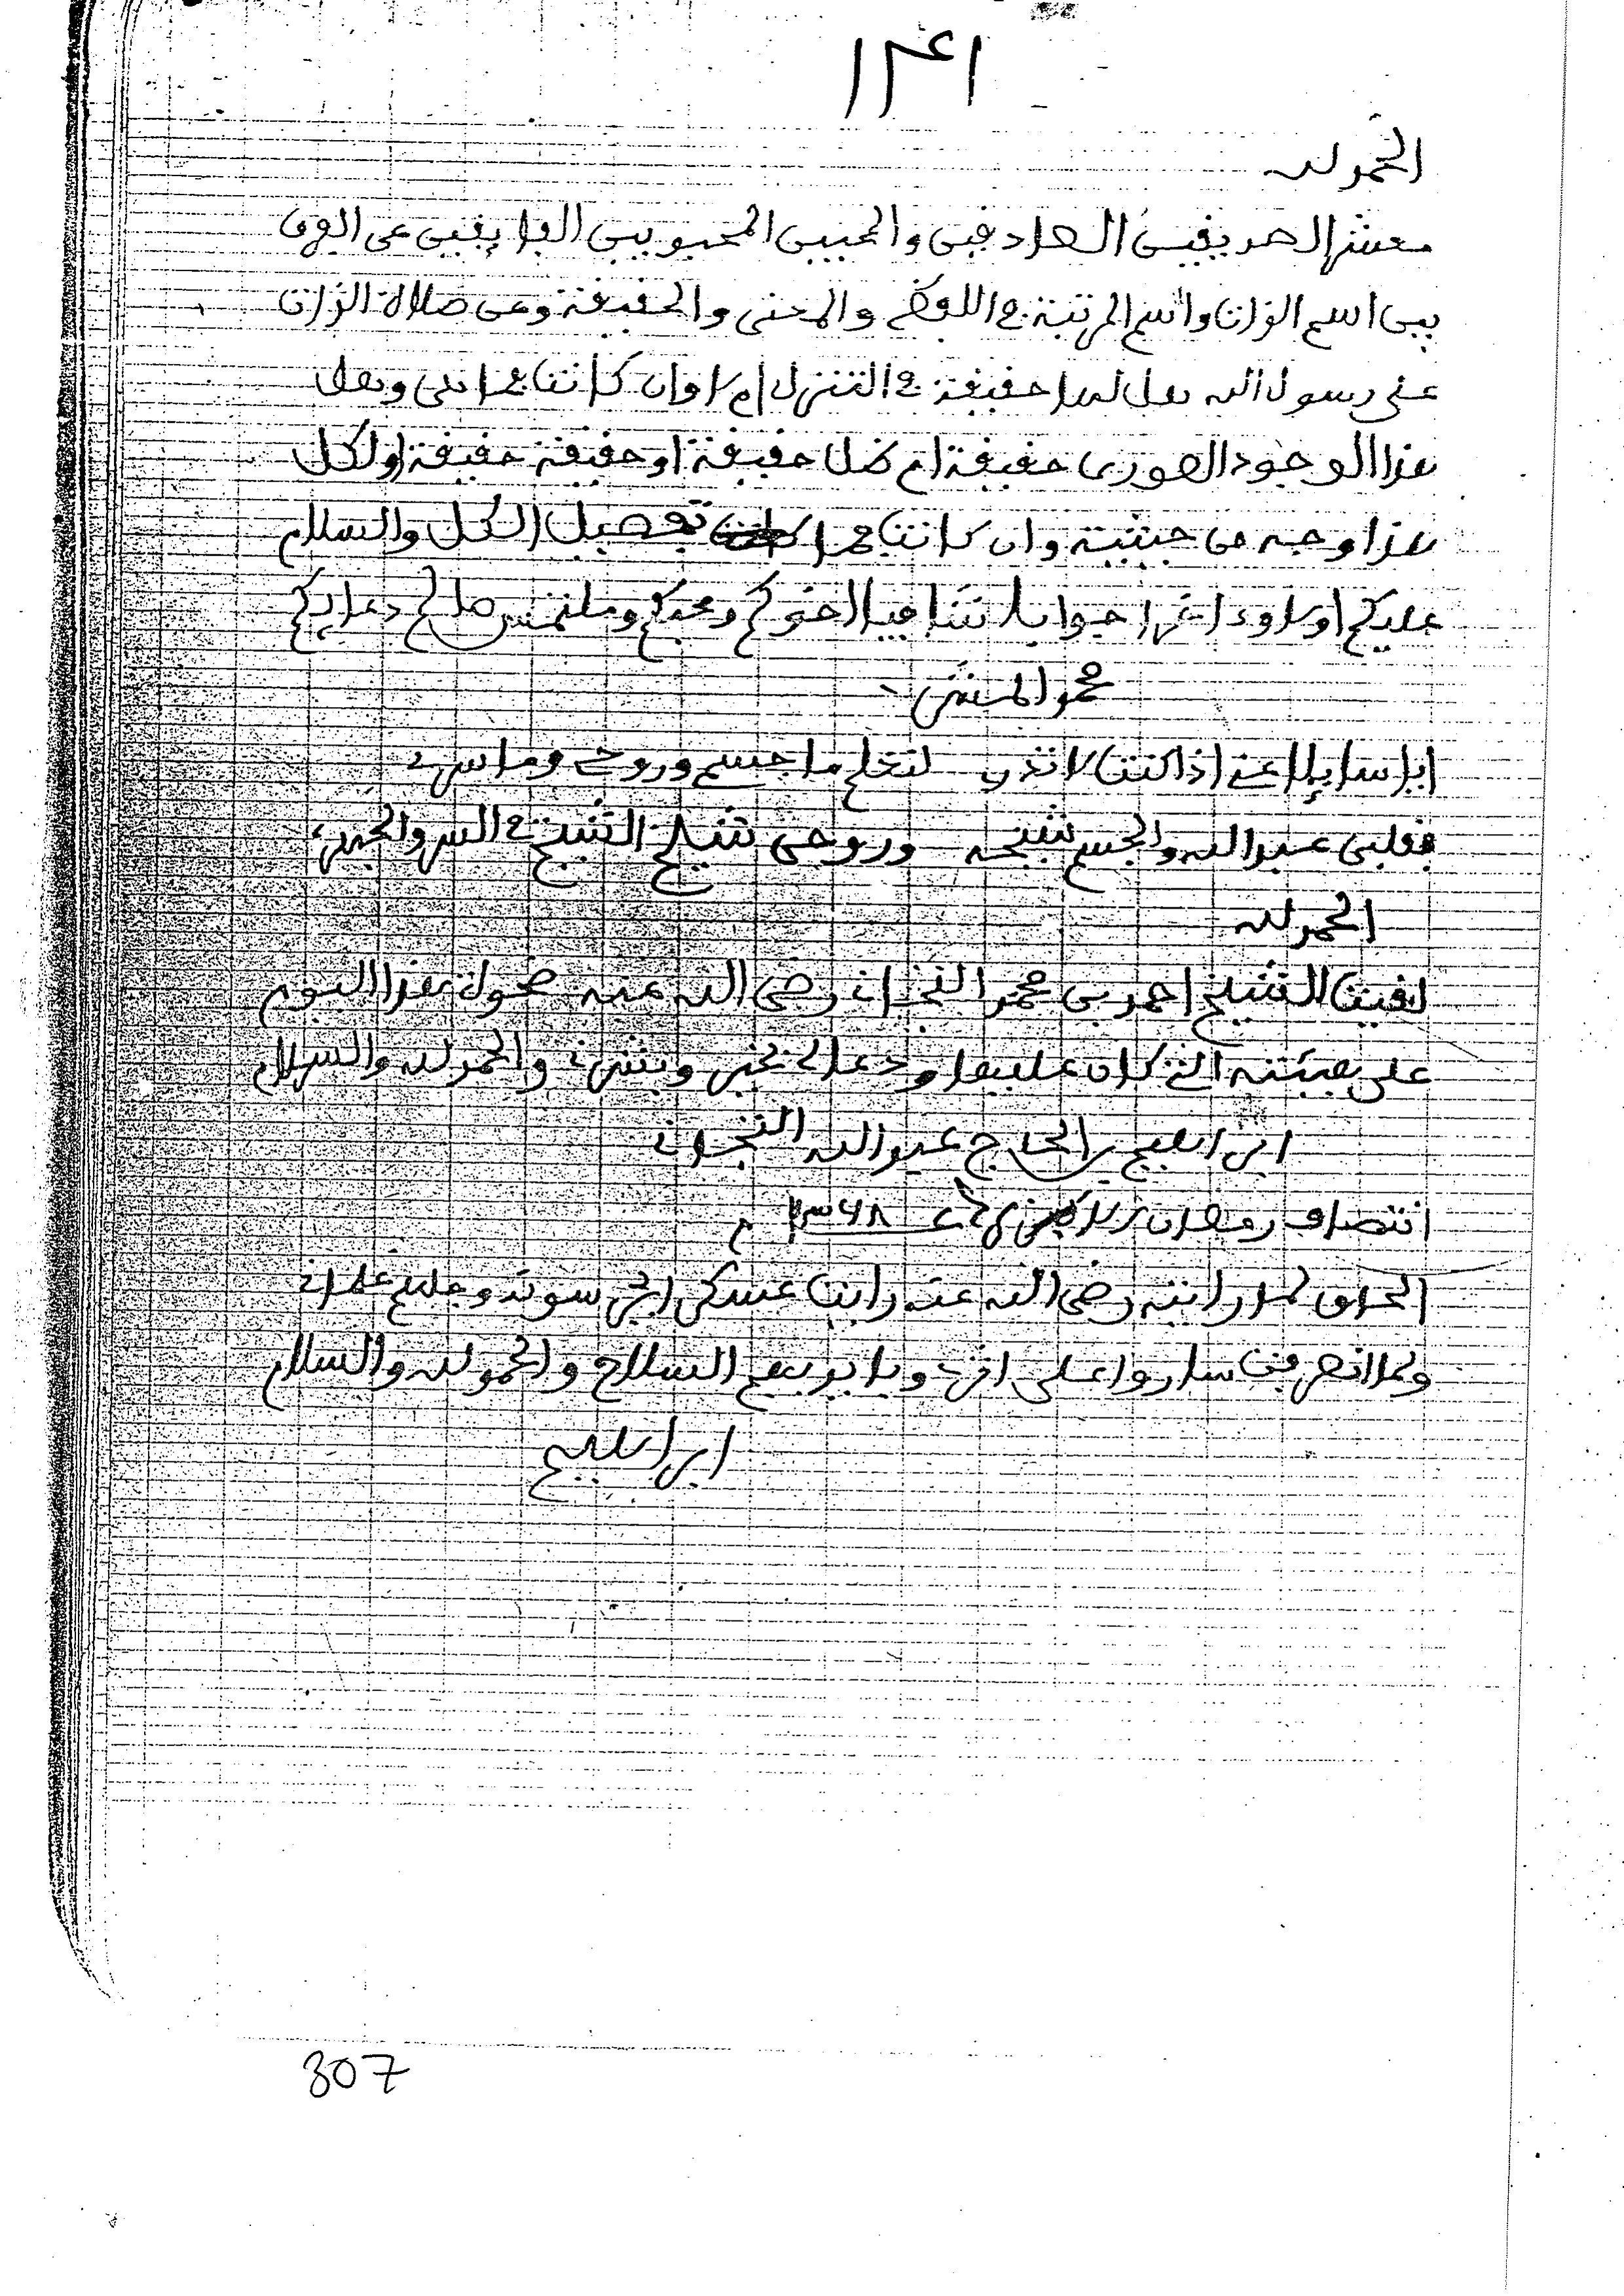 الحمد لله
معشر الصديقين الصادقين والمحبين المحبوبين الفايقين عن الفرق
بين اسم الذات واسم المرتبة في اللفظ والمعنى والحقيقة وعن صلاة الذات
على رسول الله هل لها حقيقة في التنزل أم لا وإن كانت فما هي وهل
هذا الوجود الصوري حقيقة أم ظل حقيقة أو حقيقة حقيقة أو لكل
هذا وجه من حيثيته وان كانت فما تفصيل الكل والسلام
عليكم أولا وءاخرا جوابا شافيا اخوكم ومحبكم وملتمس صالح دعايكم
محمد المشري
ايا سايلا عني اذا كنت لا تدر لتعلم ما جسمي وروحي وما سري
فقلبي عبد الله والجسم شيخه وروحي شيخ الشيخ في السر والجهر
الحمد لله
لقيت الشيخ احمد بن محمد التجاني رضي الله عنه ضحوة هذا اليوم
على هيئته التي كان عليها ودعا لي بخير وبشرني والحمد لله والسلام
ابراهيم بن الحاج عبد الله التجاني
انتصاف رمضان عام ١٣٦٨
الحاق لما رايته رضي الله عنه رايت عسكر
ولما انصرفت ساروا على اثري وبايديهم السلاح والحمد لله والسلام
ابراهيم
307